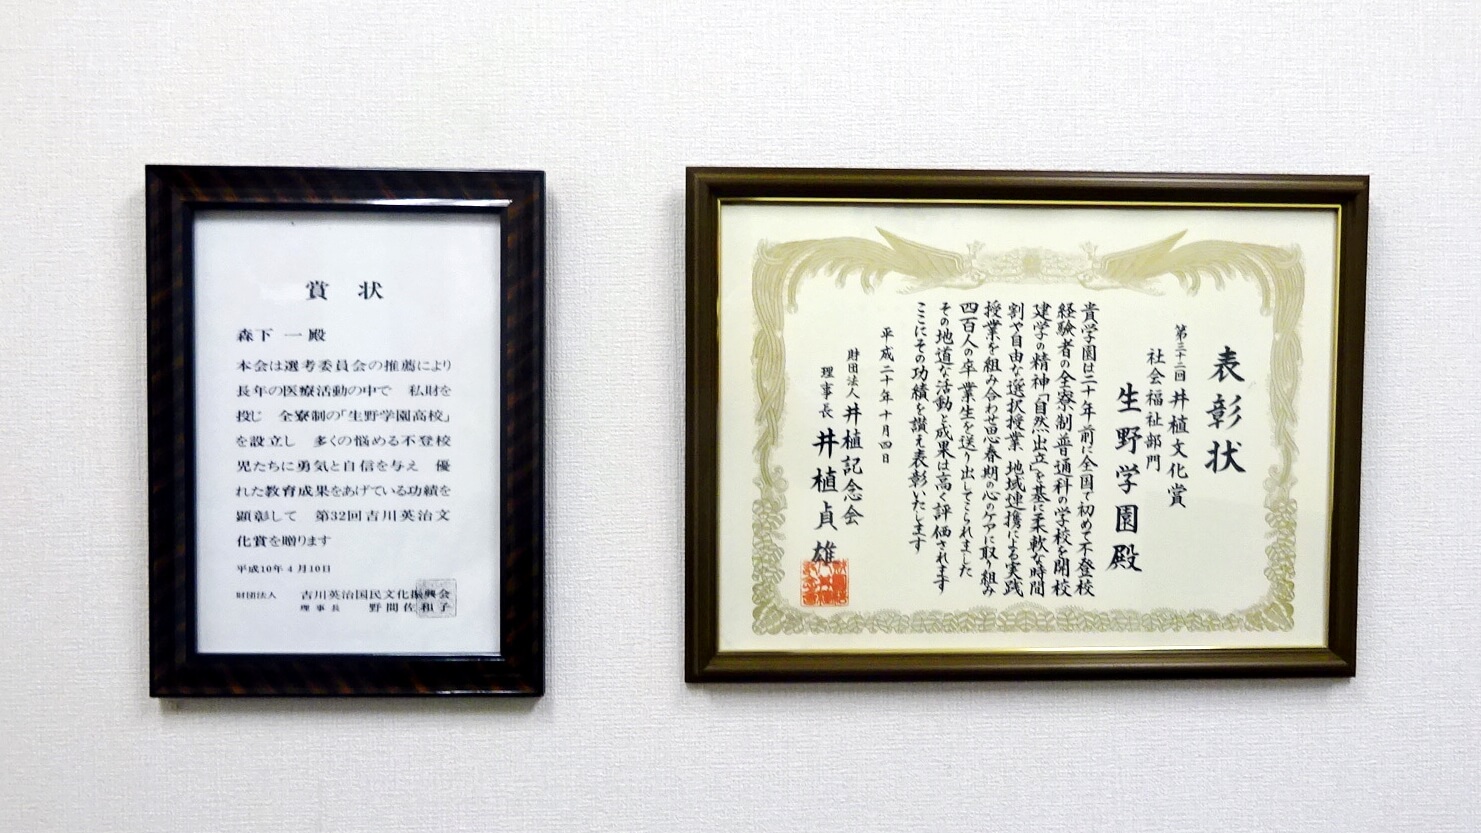 賞 状
森下 一 殿
本会は選考委員会の推薦により
長年の医療活動の中で 私財を
投じ 全寮制の「生野学園高校」
を設立し 多くの悩める不登校
児たちに勇気と自信を与え 優
れた教育成果をあげている功績を
顕彰して 第32回吉川英治文
化賞を贈ります
平成10年4月10日
財団法人 吉川英治国民文化振興会
理事長 野間佐和子
表彰状
第三十二回 井植文化賞
社会福祉部門
生野学園殿
貴学園は二十年前に全国で初めて不登校
経験者の全寮制普通科の学校を開校
建学の精神「自然出立」を基に柔軟な時間
割や自由な選択授業 地域連携による実践
授業を組み合わせ思春期の心のケアに取り組み
四百人の卒業生を送り出してこられました
その地道な活動と成果は高く評価されます
ここにその功績を讃え表彰いたします
平成二十年十月四日
財団法人 井植記念会
理事長 井植貞雄